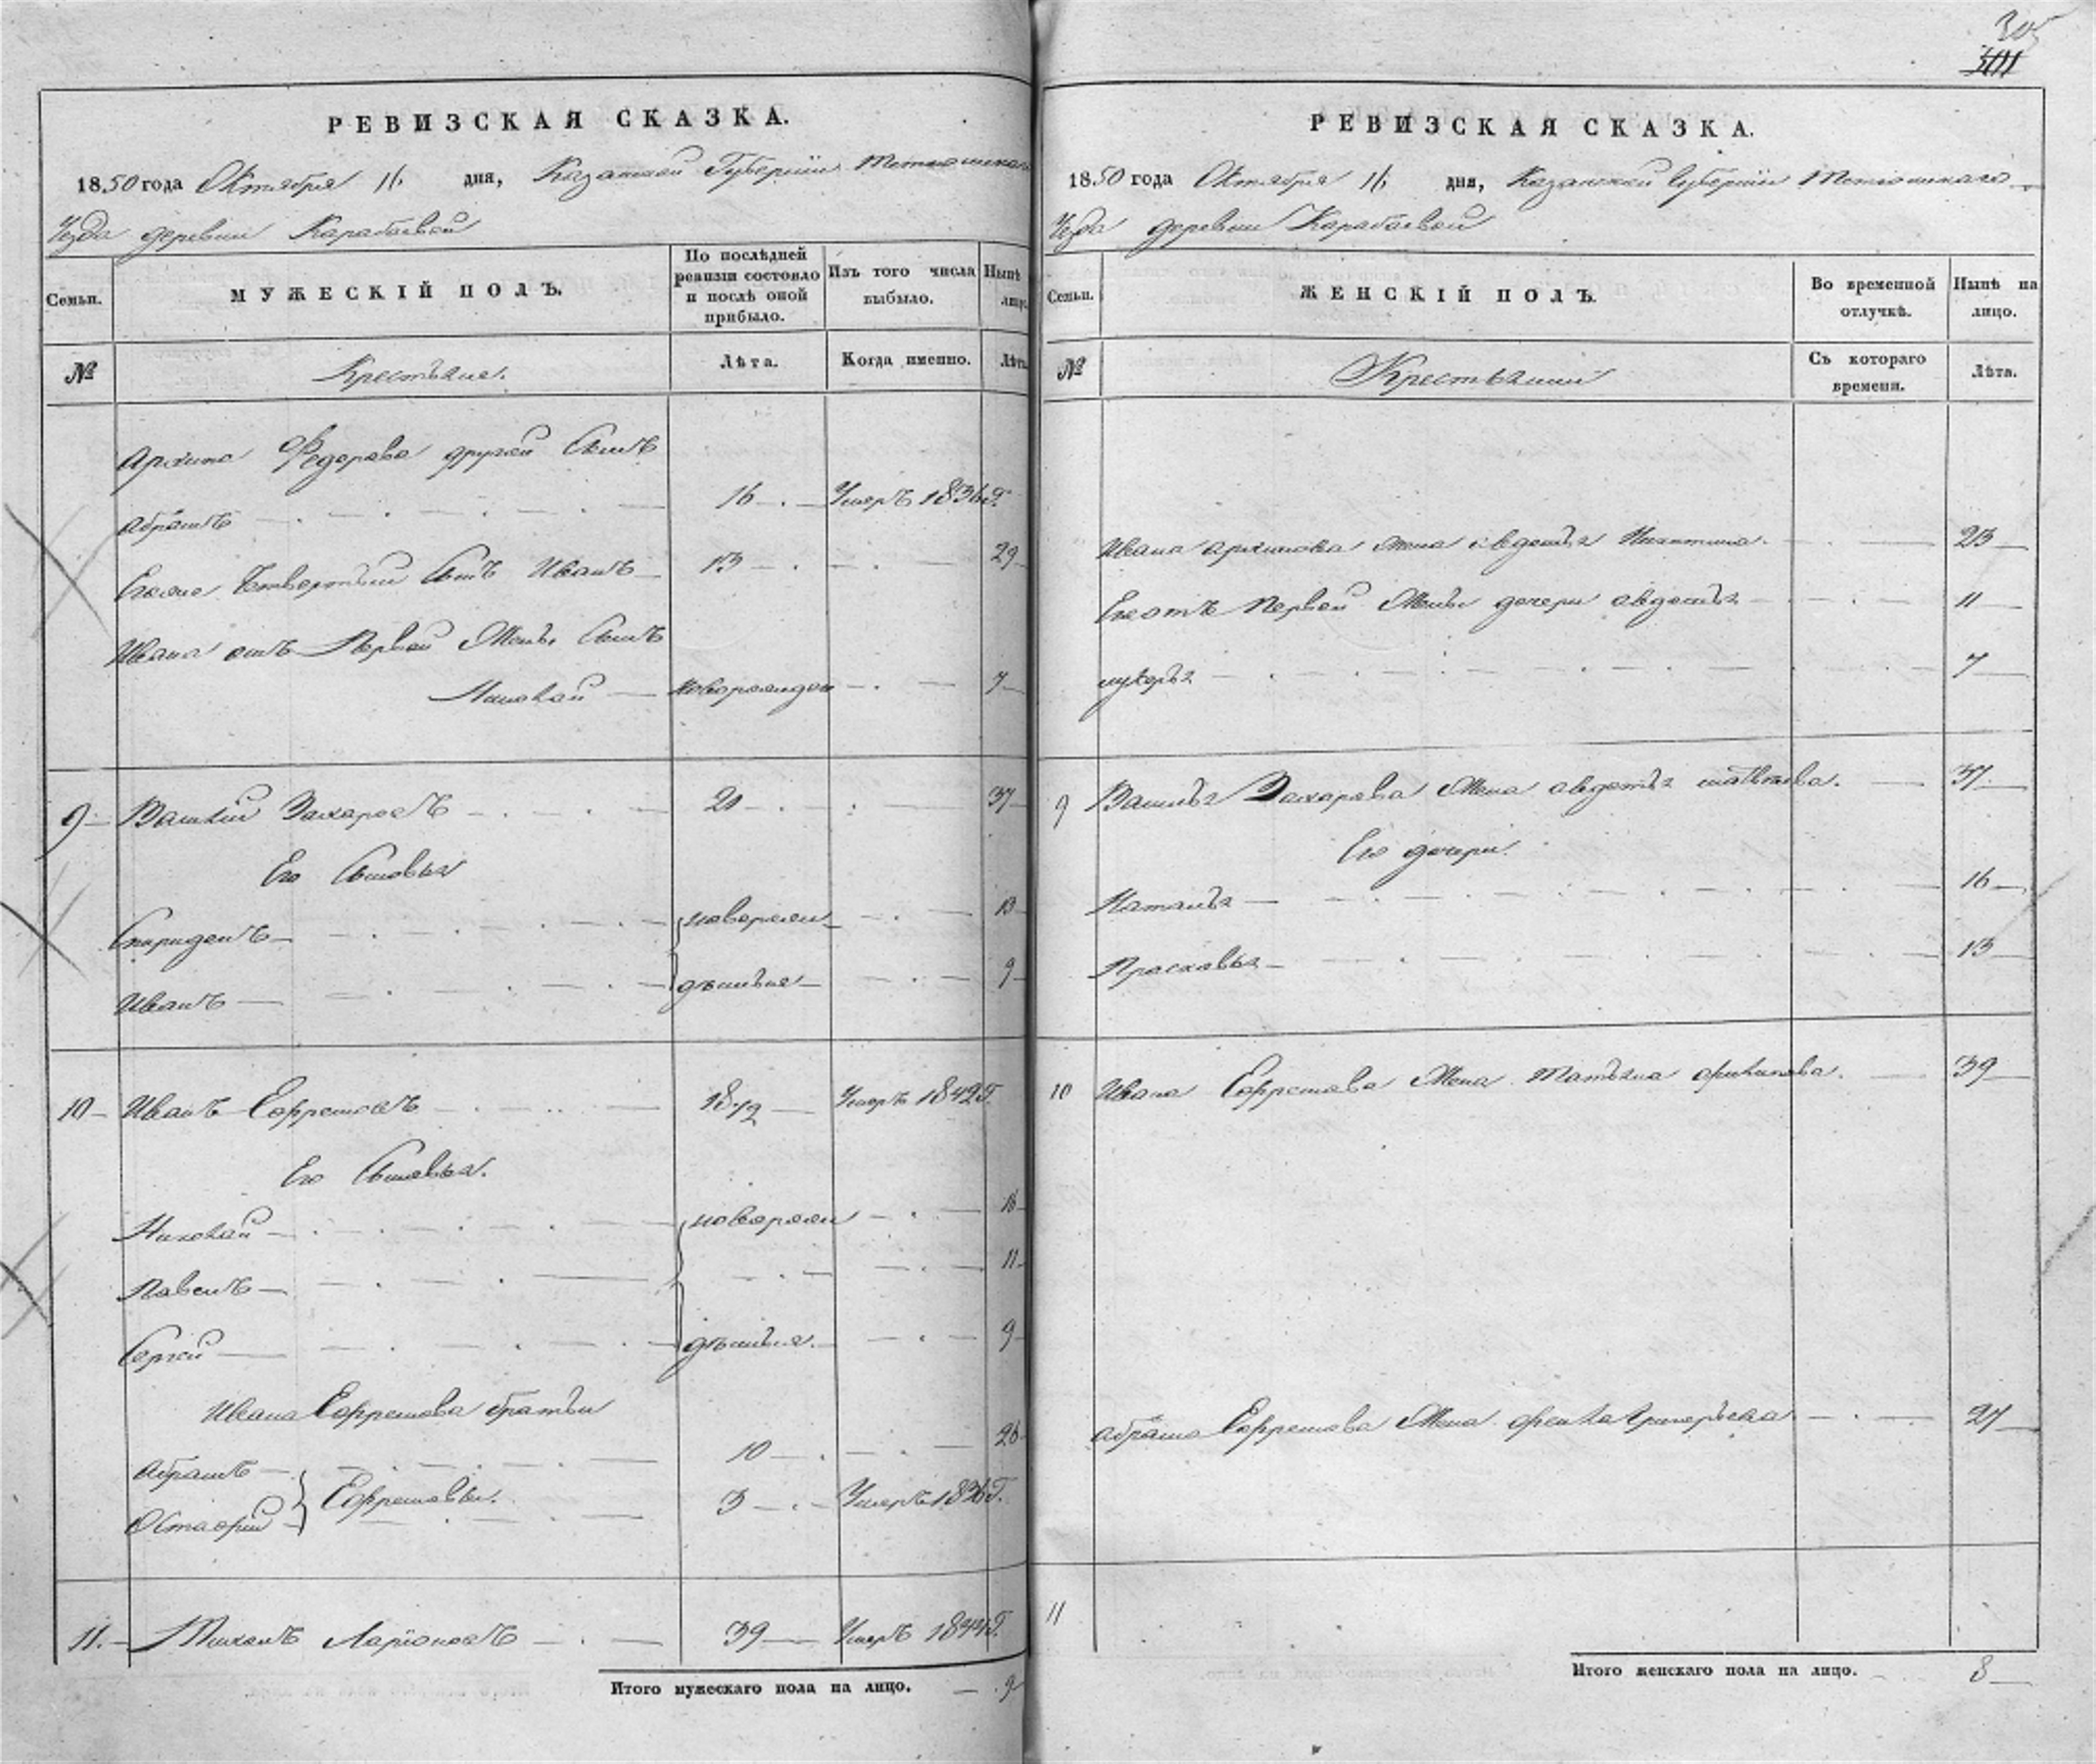 305
РЕВИЗСКАЯ СКАЗКА.
1850 года Октября 16 дня, Казанской Губернiи Тетюшскаго
Уезда деревни Карабаевой
Семьи.
МУЖЕСКІЙ ПОЛЪ.
По послѣдней ревизіи состояло и послѣ оной прибыло.
Изъ того числа выбыло.
Нынѣ на лицо.
№
Крестьяне.
Лѣта.
Когда именно.
Лѣта.
Архипа Федорова другой Сынъ
Абрамъ 16 Умеръ 1836 г.
Его же Четвертый Сынъ Иванъ 13 29
Ивана отъ Первой Жены Сынъ
Николай новорожден 7
9 Василий Захаровъ 20 37
Его Сыновья
Спиридонъ новорож 13
Иванъ денные 9
10 Иванъ Ефремовъ 18 1/2 Умеръ 1842 г.
Его Сыновья.
Николай новорож 16
Павелъ 11
Сергей денные. 9
Ивана Ефремова братьи
Абрамъ 10 26
Ефремовы.
3 Умеръ 1836 г.
11. Ларiоновъ 39 Умеръ 1844 г.
Итого мужескаго пола на лицо. 9
РЕВИЗСКАЯ СКАЗКА.
1850 года Октября 16 дня, Казанской Губернiи Тетюшскаго
Уезда деревни Карабаевой
Семьи.
ЖЕНСКІЙ ПОЛЪ.
Во временной отлучкѣ.
Нынѣ на лицо.
№
Съ котораго времени.
Лѣта.
Ивана Архипова жена Авдотья Никитина. 23
Его отъ Первой Жены дочери Авдотья 11
Лукерья 7
9 Василья Захарова Жена Авдотья Матвеева. 37
Его дочери.
Наталья 16
Прасковья 13
10 Ивана Ефремова Жена Татьяна Архипова. 39
Абрама Ефремова Жена Григорьева 27
11
Итого женскаго пола на лицо. 8